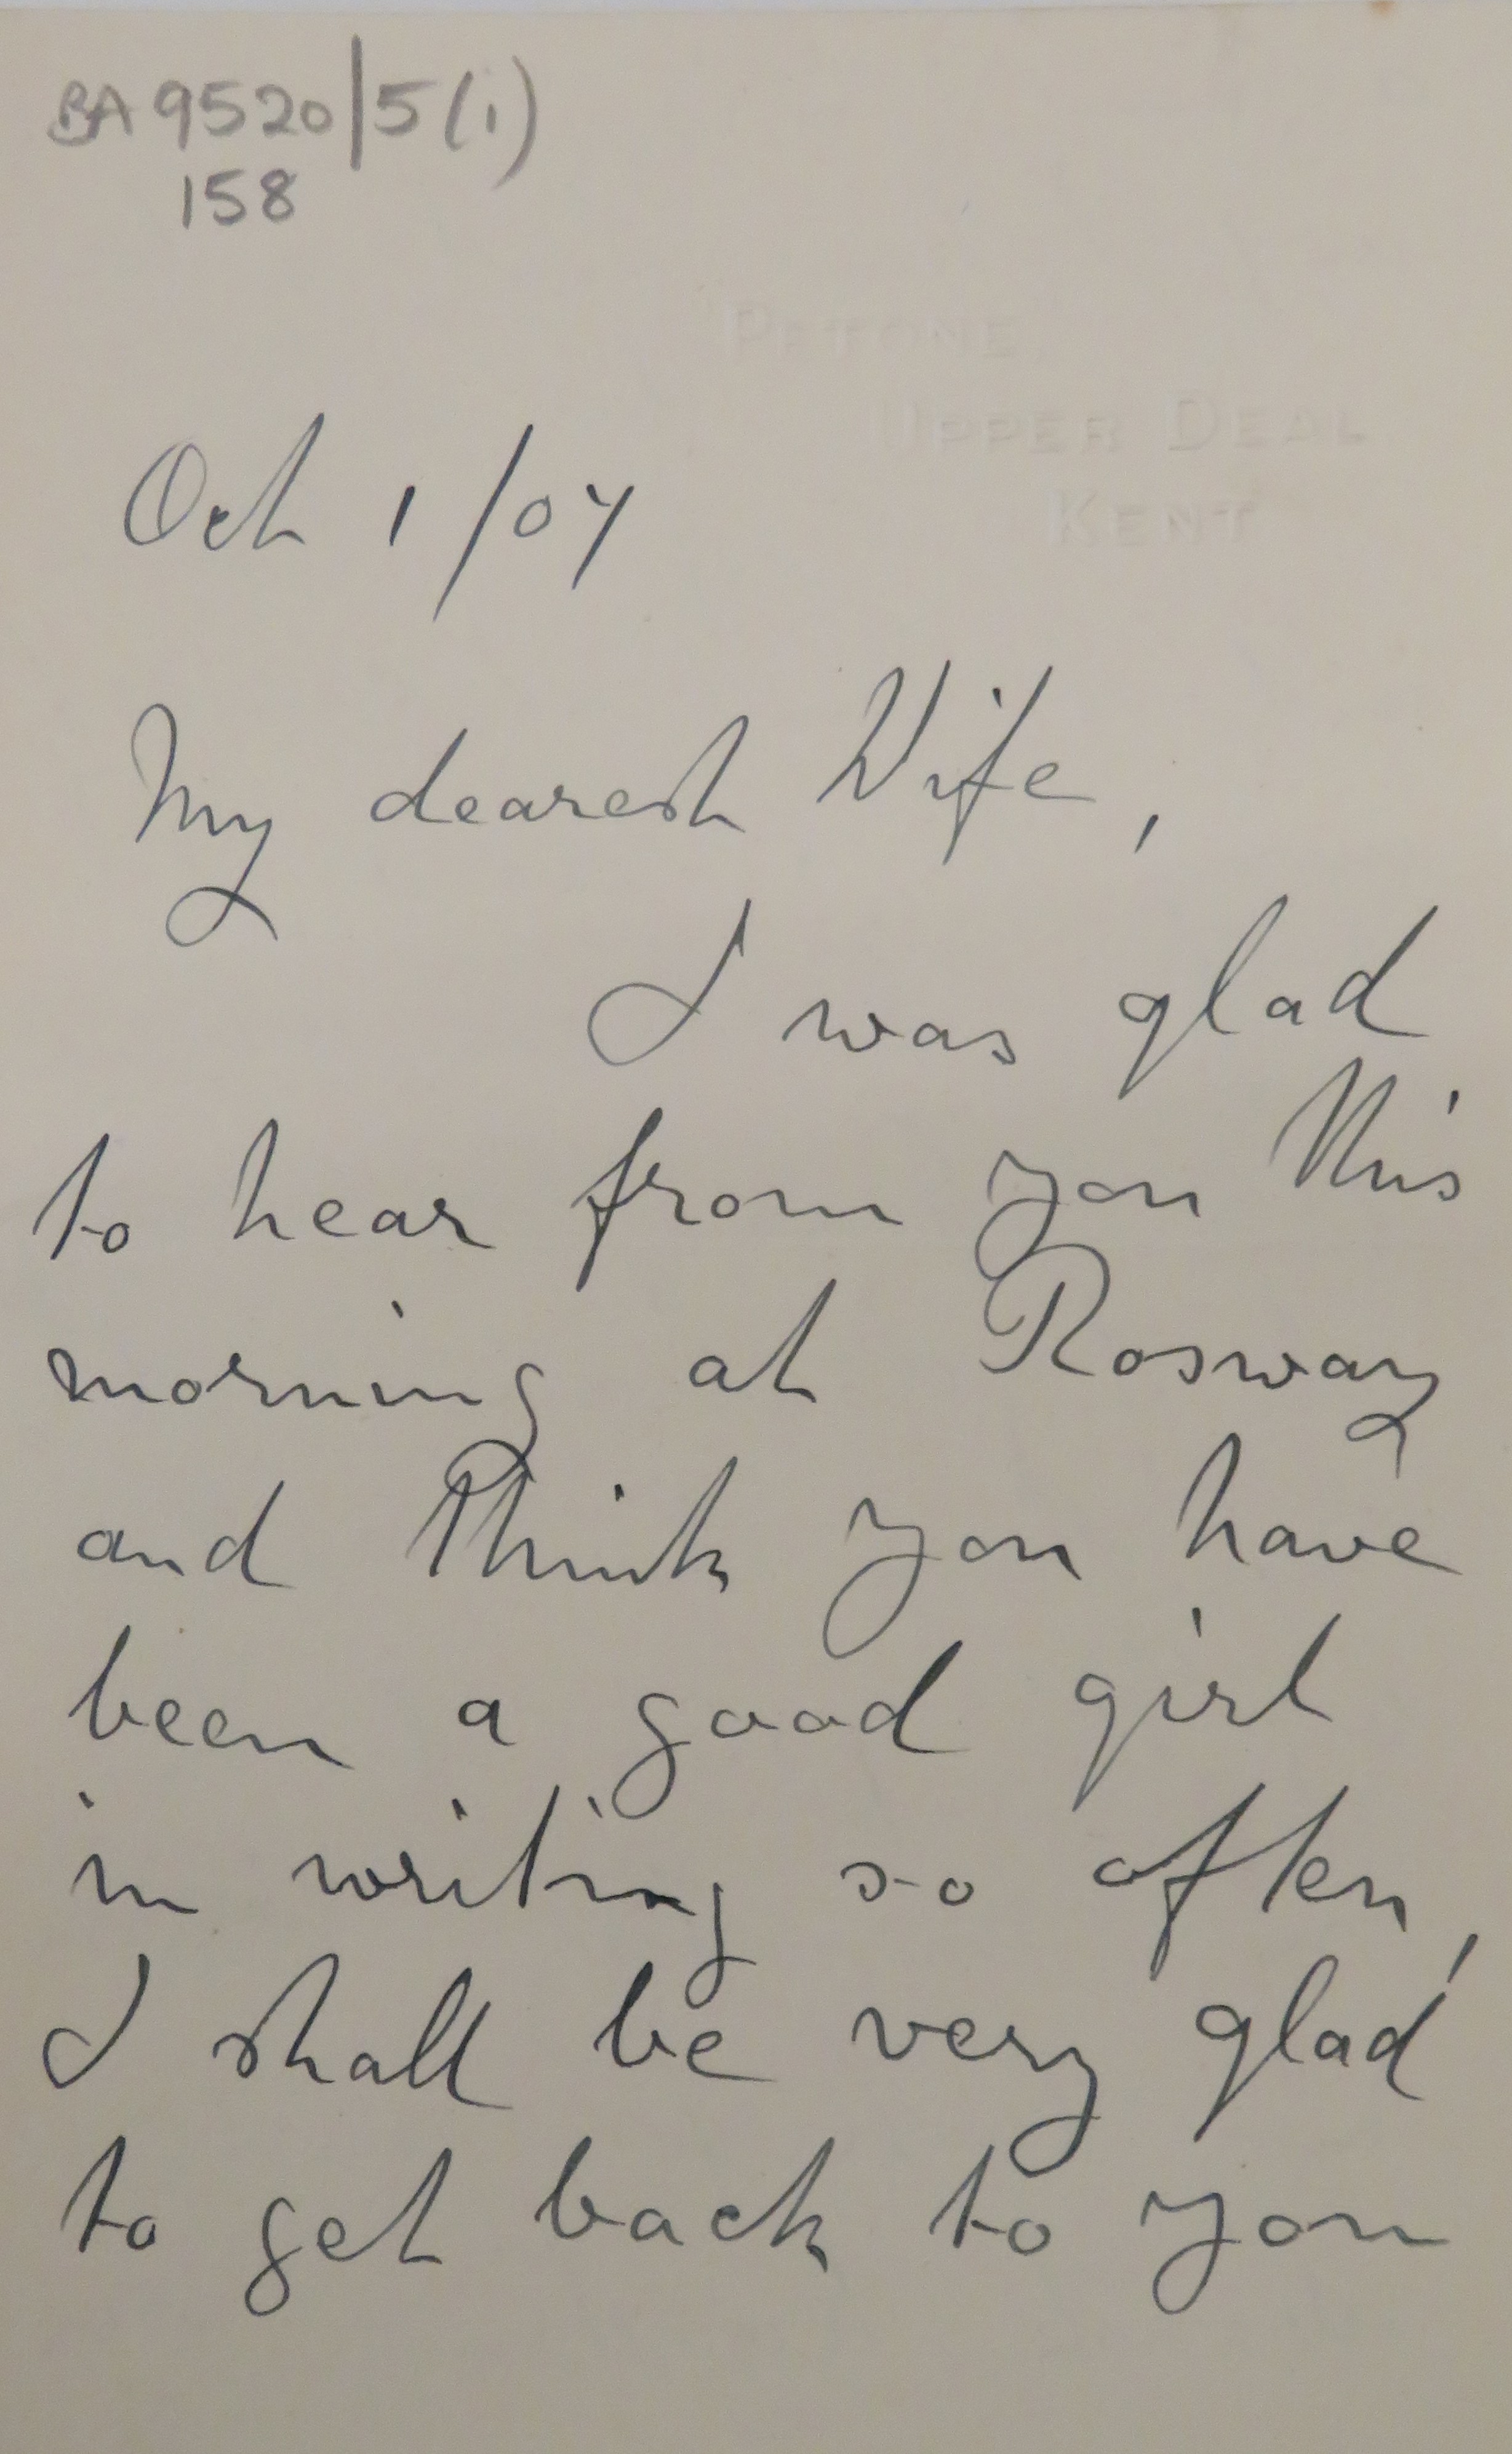 BA 9520/5(i)
158
PETONE,
UPPER DEAL
KENT
Oct 1/07
My dearest Wife,
I was glad
to hear from you this
morning at Rosway
and think you have
been a good girl
in writing so often,
I shall be very glad
to get back to you